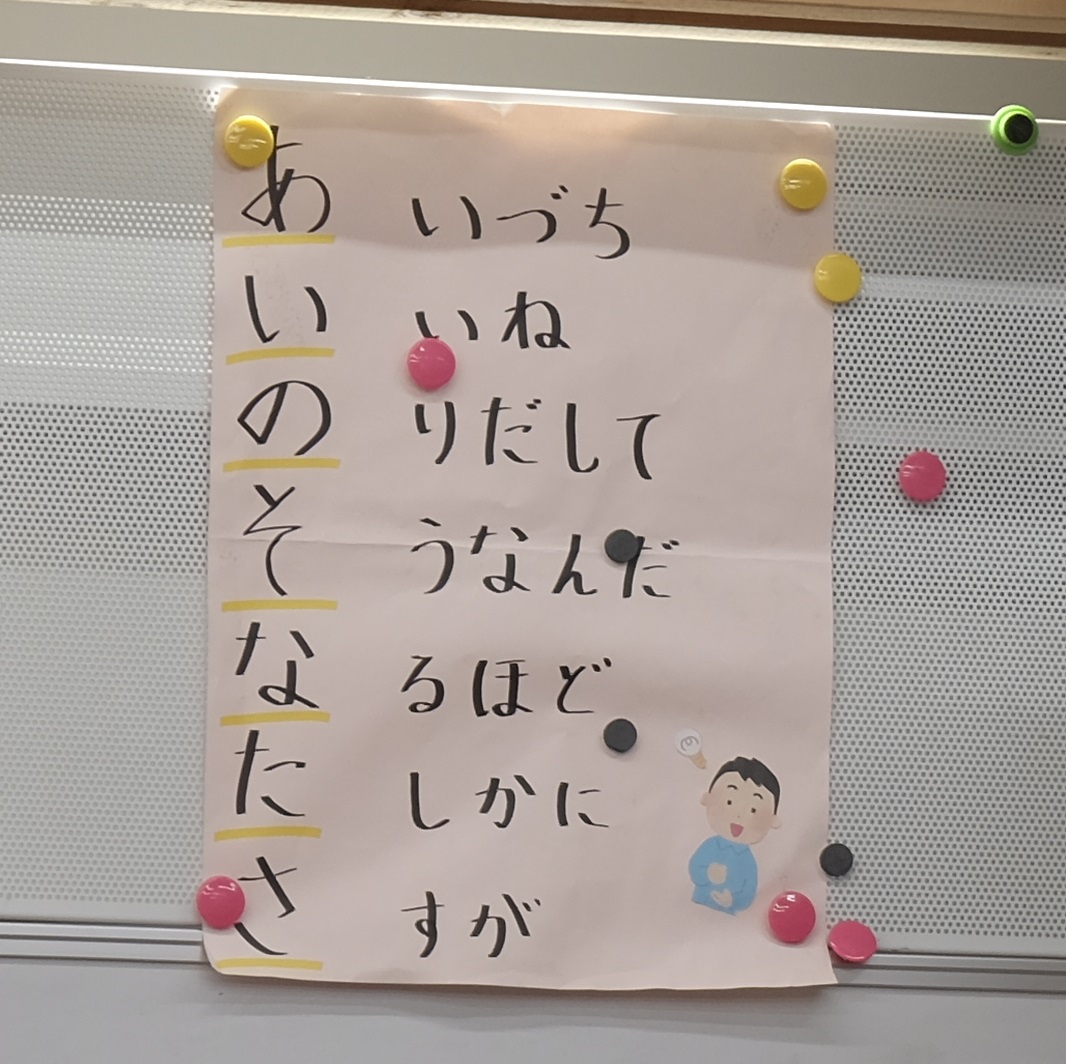 あ いづち
い いね
の りだして
そ うなんだ
な るほど
た しかに
さ すが